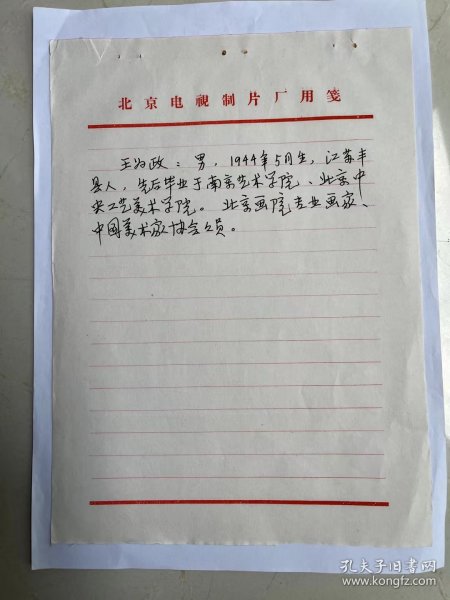 北京电視制片厂用笺
王为政：男，1944年5月生，江苏丰
县人，先后毕业于南京艺术学院、北京中
央工艺美术学院。北京画院专业画家、
中国美术家协会会员。
孔夫子旧书网
www.kongfz.com